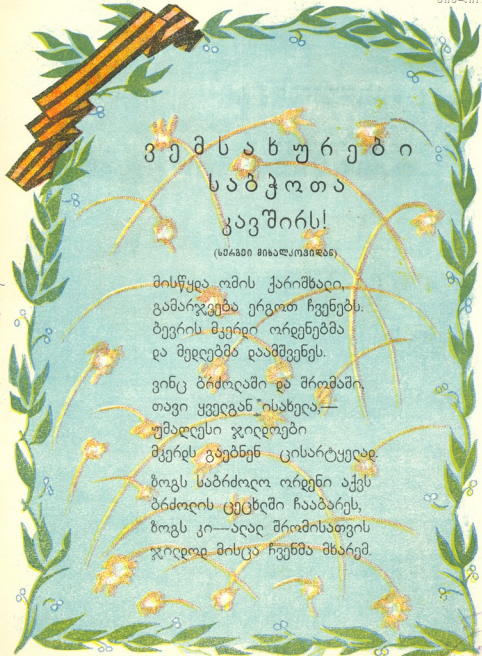 ვემსახურები
საბჭოთა
კავშირს!
(სერგეი მიხალკოვიდან)
მისწყდა ომის ქარიშხალი,
გამარჯვება ერგოთ ჩვენებს.
ბევრის მკერდი ორდენებმა
და მედლებმა დაამშვენეს.
ვინც ბრძოლაში და შრომაში,
თავი ყველგან ისახელა,—
უმაღლესი ჯილდოები
მკერდს გაებნენ ცისარტყელად.
ზოგს საბრძოლო ორდენი აქვს
ბრძოლის ცეცხლში ჩააბარეს,
ზოგს კი—ალალ შრომისათვის
ჯილდოდ მისცა ჩვენმა მხარემ.